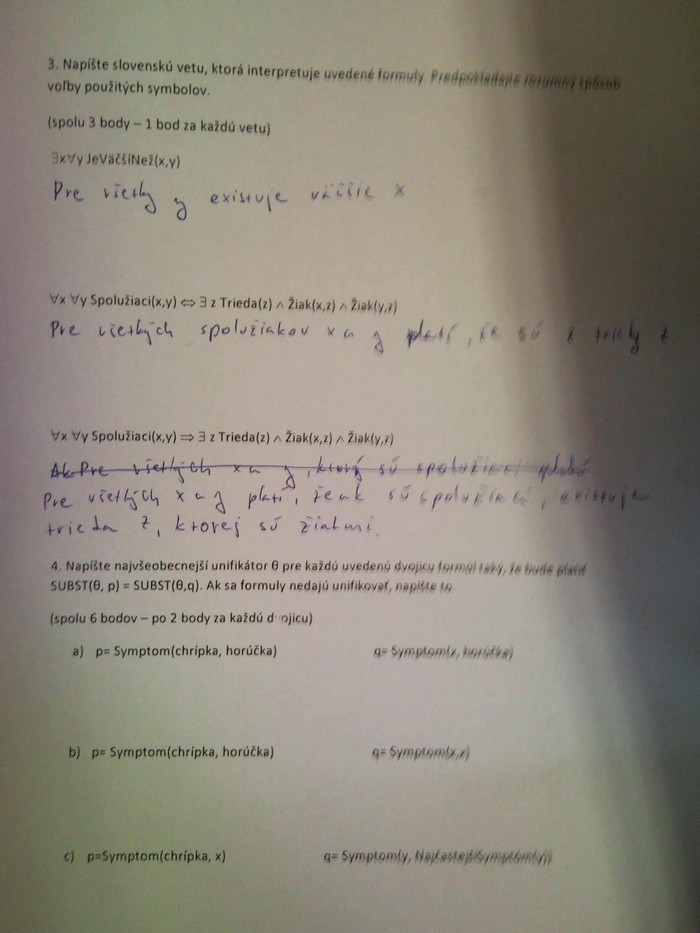 3. Napíšte slovenskú vetu, ktorá interpretuje uvedené formuly. Predpokladajte rozumný spôsob
voľby použitých symbolov.
(spolu 3 body – 1 bod za každú vetu)
∃x∀y JeVäčšíNež(x,y)
Pre všetky y existuje väčšie x
∀x ∀y Spolužiaci(x,y) ⇔ ∃ z Trieda(z) ∧ Žiak(x,z) ∧ Žiak(y,z)
Pre všetkých spolužiakov x a y platí, že sú z triedy z
∀x ∀y Spolužiaci(x,y) ⇒ ∃ z Trieda(z) ∧ Žiak(x,z) ∧ Žiak(y,z)
Ak Pre všetkých x a y, ktorý sú spolužiaci platí
Pre všetkých x a y platí, že ak sú spolužiaci, existuje
trieda z, ktorej sú žiakmi.
4. Napíšte najvšeobecnejší unifikátor θ pre každú uvedenú dvojicu formúl taký, že bude platiť
SUBST(θ, p) = SUBST(θ,q). Ak sa formuly nedajú unifikovať, napíšte to.
(spolu 6 bodov – po 2 body za každú dvojicu)
a) p= Symptom(chrípka, horúčka) q= Symptom(x, horúčka)
b) p= Symptom(chrípka, horúčka) q= Symptom(x,x)
c) p=Symptom(chrípka, x) q= Symptom(y, NajčastejšíSymptóm(y))